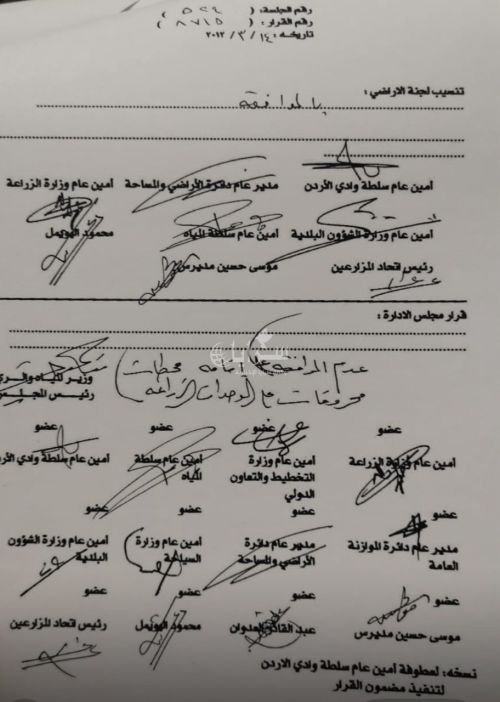 رقم الجلسة: ( ٥٢٤ )
رقم القرار: ( ٨٧١٥ )
تاريخه: ١٤ / ٣ / ٢٠١٢
تنسيب لجنة الاراضي:
بالموافقة
أمين عام سلطة وادي الأردن مدير عام دائرة الأراضي والمساحة أمين عام وزارة الزراعة
أمين عام وزارة الشؤون البلدية أمين عام سلطة المياه محمود الهويمل
رئيس اتحاد المزارعين موسى حسين مديرس
قرار مجلس الادارة:
عدم الموافقة على اقامة محطات
محروقات على الوحدات الزراعية
وزير المياه والري
رئيس المجلس
عضو عضو عضو عضو
أمين عام وزارة الزراعة أمين عام وزارة التخطيط والتعاون الدولي أمين عام سلطة المياه أمين عام سلطة وادي الأردن
عضو عضو عضو عضو
مدير عام دائرة الموازنة العامة مدير عام دائرة الأراضي والمساحة أمين عام وزارة السياحة أمين عام وزارة الشؤون البلدية
عضو عضو عضو عضو
موسى حسين مديرس عبد القادر العدوان محمود الهويمل رئيس اتحاد المزارعين
نسخه: لعطوفة أمين عام سلطة وادي الاردن
لتنفيذ مضمون القرار